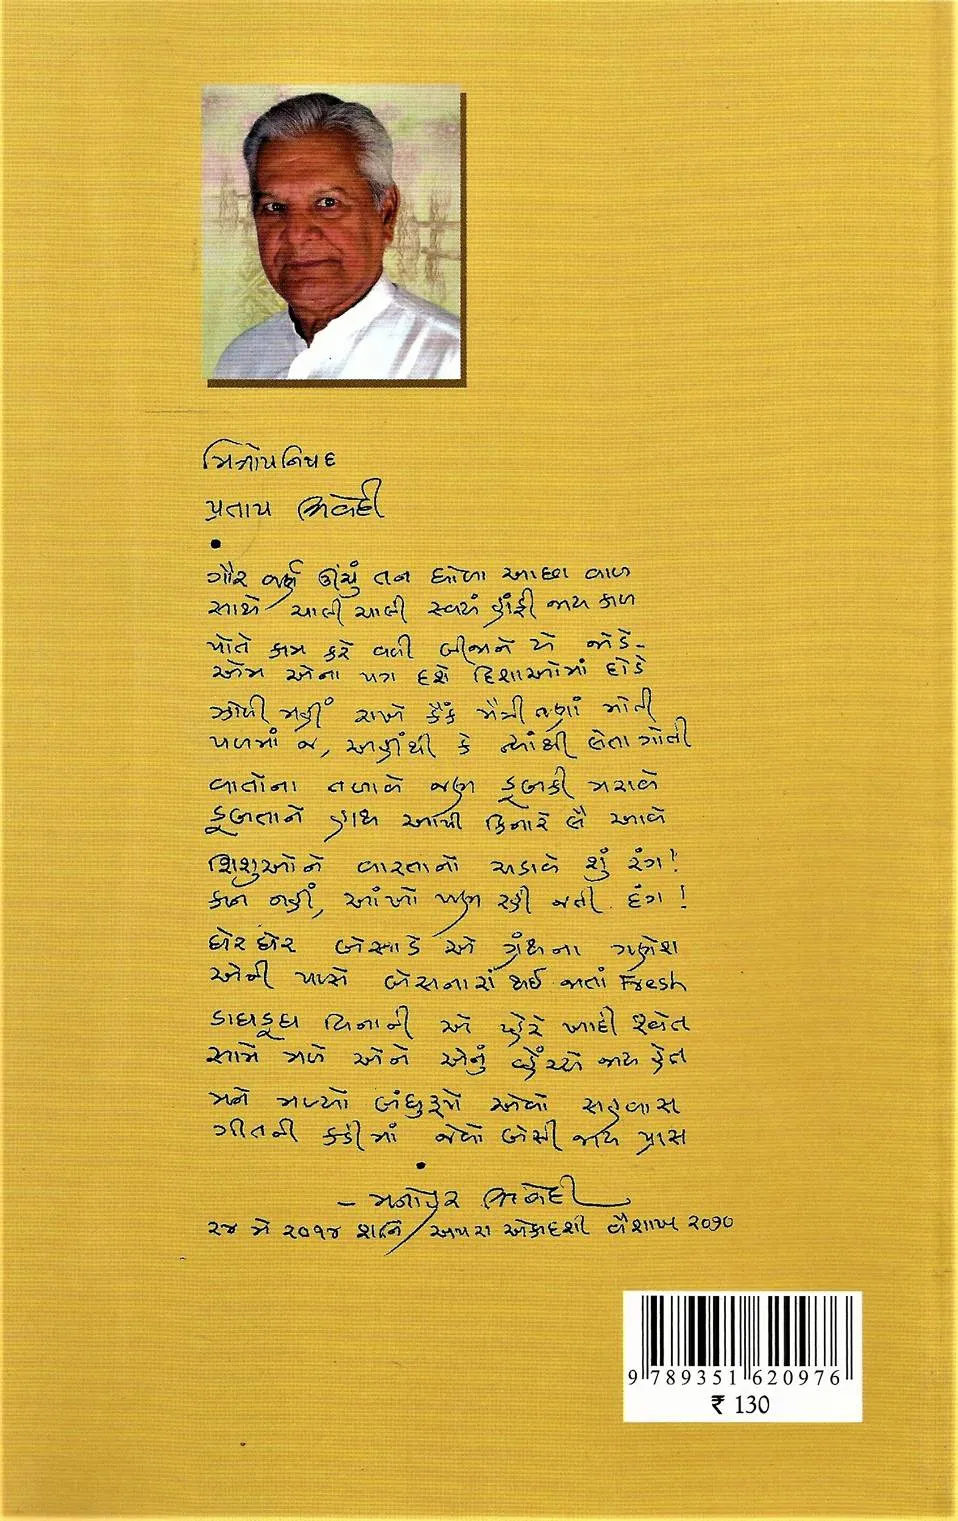 મિત્રોપનિષદ
પ્રતાપ ત્રિવેદી
•
ગૌર વર્ણ ઊંચું તન ધોળા આછા વાળ
સાથે ચાલી ચાલી સ્વયં હાંફી જાય કાળ
પોતે કામ કરે વળી બીજાને યે જોડે–
એમ એના પગ દશે દિશાઓમાં દોડે
ઝોળી મહીં રાખે કૈંક મૈત્રી તણાં મોતી
પળમાં જ, અહીંથી કે ત્યાંથી લેતા ગોતી
વાતોના તળાવે જણ ડૂબકી મરાવે
ડૂબતાને હાથ આપી કિનારે લૈ આવે
શિશુઓને વારતાનો ચડાવે શું રંગ!
કાન નહીં, આંખો પણ રહી જતી દંગ!
ઘેર ઘેર બેસાડે એ ગ્રંથના ગણેશ
એની પાસે બેસનારાં થઈ જાતાં Fresh
ડાઘડૂઘ વિનાની એ પ્હેરે ખાદી શ્વેત
સામે મળે એને એનું વ્હેંચ્યે જાય હેત
મને મળ્યો બંધુરૂપે એવો સહવાસ
ગીતની કડીમાં જેવો બેસી જાય પ્રાસ
•
– મનોહર ત્રિવેદી
૨૪ મે ૨૦૧૪ શનિ અપરા એકાદશી વૈશાખ ૨૦૭૦
9 789351 620976
₹ 130